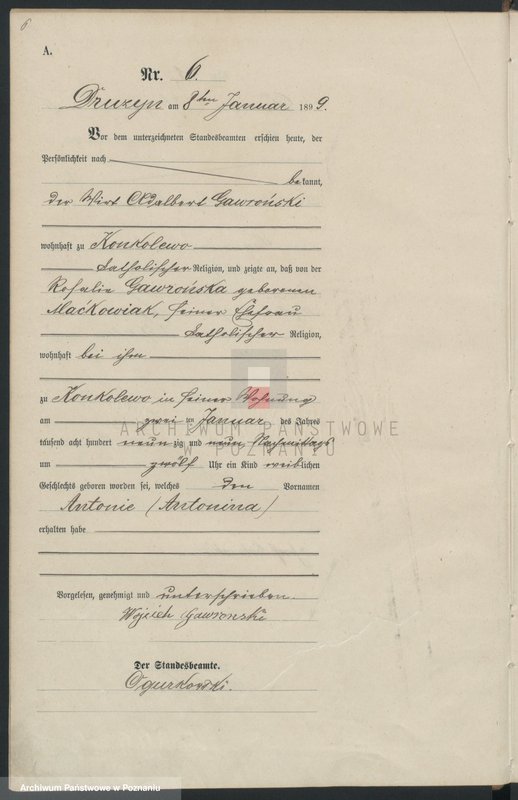 6
A.
Nr. 6.
Druzyn am 8ten Januar 1899.
Vor dem unterzeichneten Standesbeamten erschien heute, der
Persönlichkeit nach
bekannt,
der Wirt Adalbert Gawroński
wohnhaft zu Konkolewo
katholischer Religion, und zeigte an, daß von der
Rosalie Gawrońska geborenen
Maćkowiak, seiner Ehefrau
katholischer Religion,
wohnhaft bei ihm
zu Konkolewo in seiner Wohnung
am zwei ten Januar des Jahres
tausend acht hundert neunzig und neun Nachmittags
um zwölf Uhr ein Kind weiblichen
Geschlechts geboren worden sei, welches den Vornamen
Antonie (Antonina)
erhalten habe
Vorgelesen, genehmigt und unterschrieben.
Wojciech Gawronski
Der Standesbeamte.
Ogurkowski.
ARCHIWUM PAŃSTWOWE
W POZNANIU
Archiwum Państwowe w Poznaniu